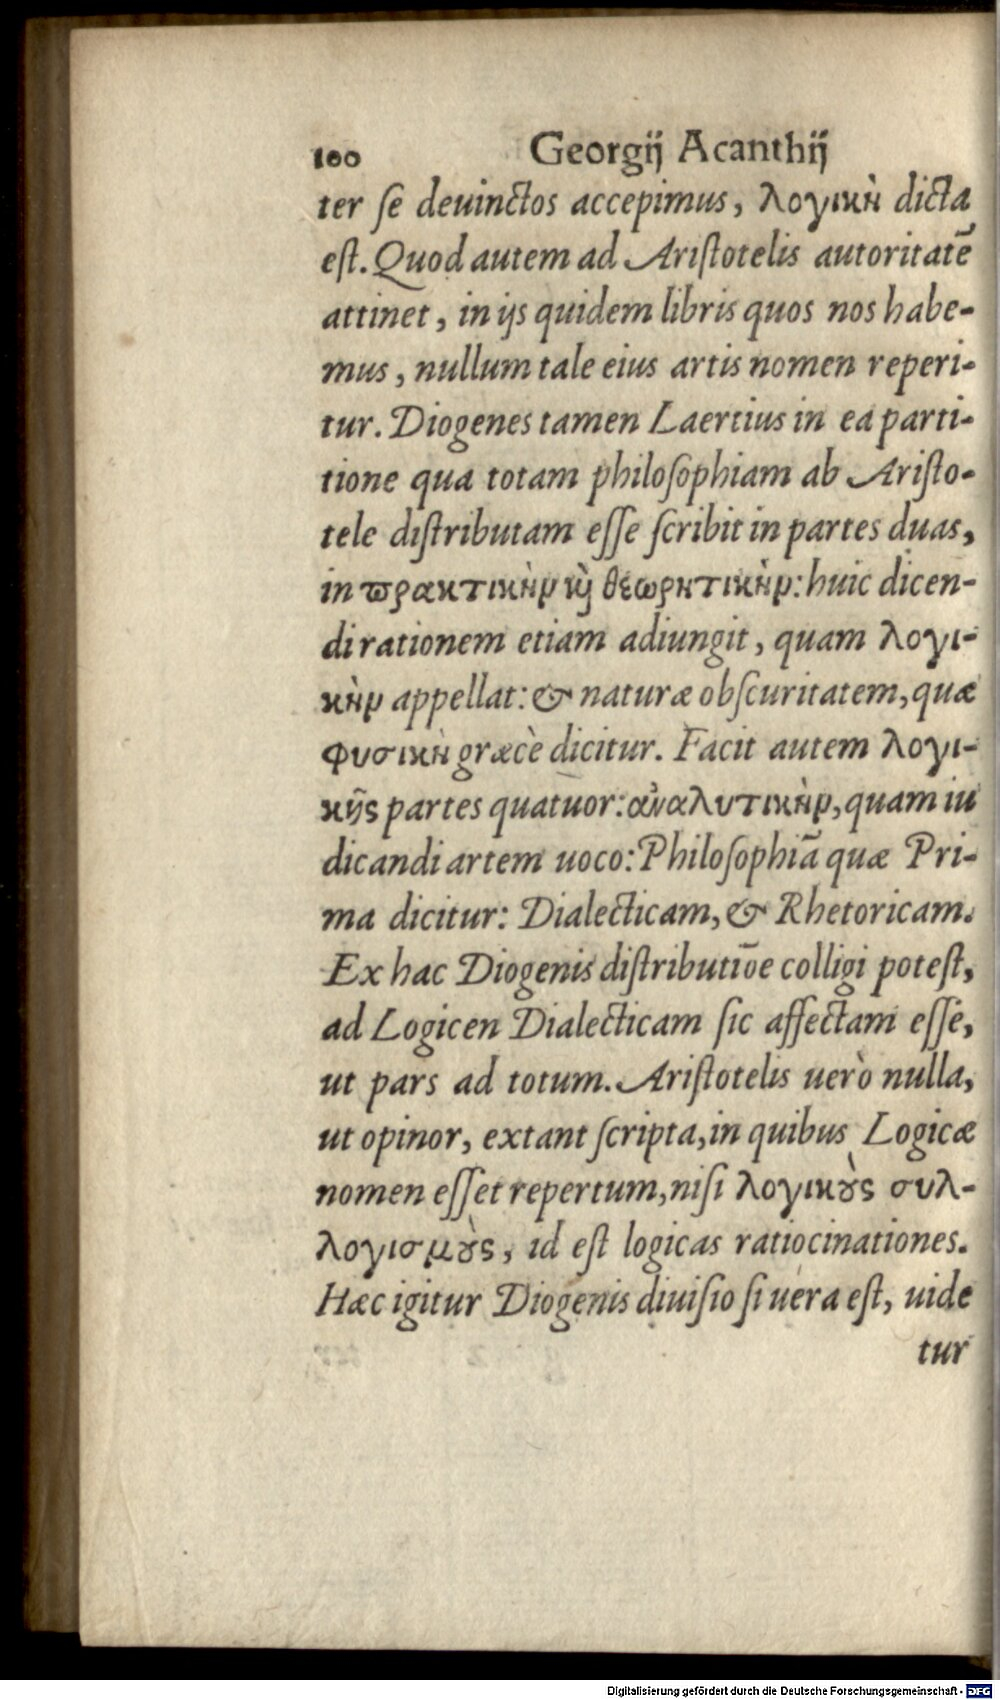 100 Georgij Acanthij
ter ſe deuinctos accepimus, λογικὴ dicta
eſt. Quod autem ad Ariſtotelis autoritatē
attinet, in ijs quidem libris quos nos habe-
mus, nullum tale eius artis nomen reperi-
tur. Diogenes tamen Laertius in ea parti-
tione qua totam philoſophiam ab Ariſto-
tele diſtributam eſſe ſcribit in partes duas,
in ϖρακτικὴν ϗ̀ θεωρητικὴν: huic dicen-
di rationem etiam adiungit, quam λογι-
κὴν appellat: & naturæ obſcuritatem, quæ
φυσικὴ græcè dicitur. Facit autem λογι-
κῆς partes quatuor: ἀναλυτικὴν, quam iu
dicandi artem uoco: Philoſophiā quæ Pri-
ma dicitur: Dialecticam, & Rhetoricam.
Ex hac Diogenis diſtributiōe colligi poteſt,
ad Logicen Dialecticam ſic affectam eſſe,
ut pars ad totum. Ariſtotelis uerò nulla,
ut opinor, extant ſcripta, in quibus Logicæ
nomen eſſet repertum, niſi λογικȣ̀ς συλ-
λογισμȣ̀ς, id eſt logicas ratiocinationes.
Hæc igitur Diogenis diuiſio ſi uera eſt, uide
tur
Digitalisierung gefördert durch die Deutsche Forschungsgemeinschaft - DFG